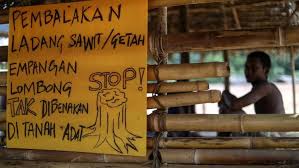 PEMBALAKAN
LADANG SAWIT/GETAH
EMPANGAN
LOMBONG
TAK DIBENAKAN
DI TANAH ADAT
STOP!